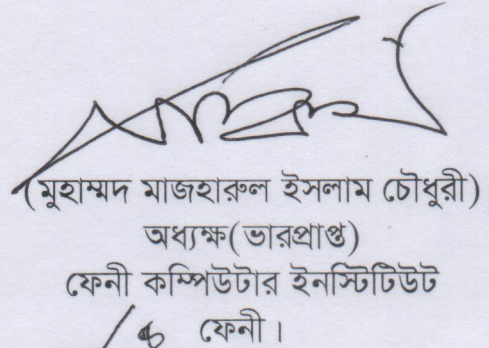 (মুহাম্মদ মাজহারুল ইসলাম চৌধুরী)
অধ্যক্ষ(ভারপ্রাপ্ত)
ফেনী কম্পিউটার ইনস্টিটিউট
ফেনী।